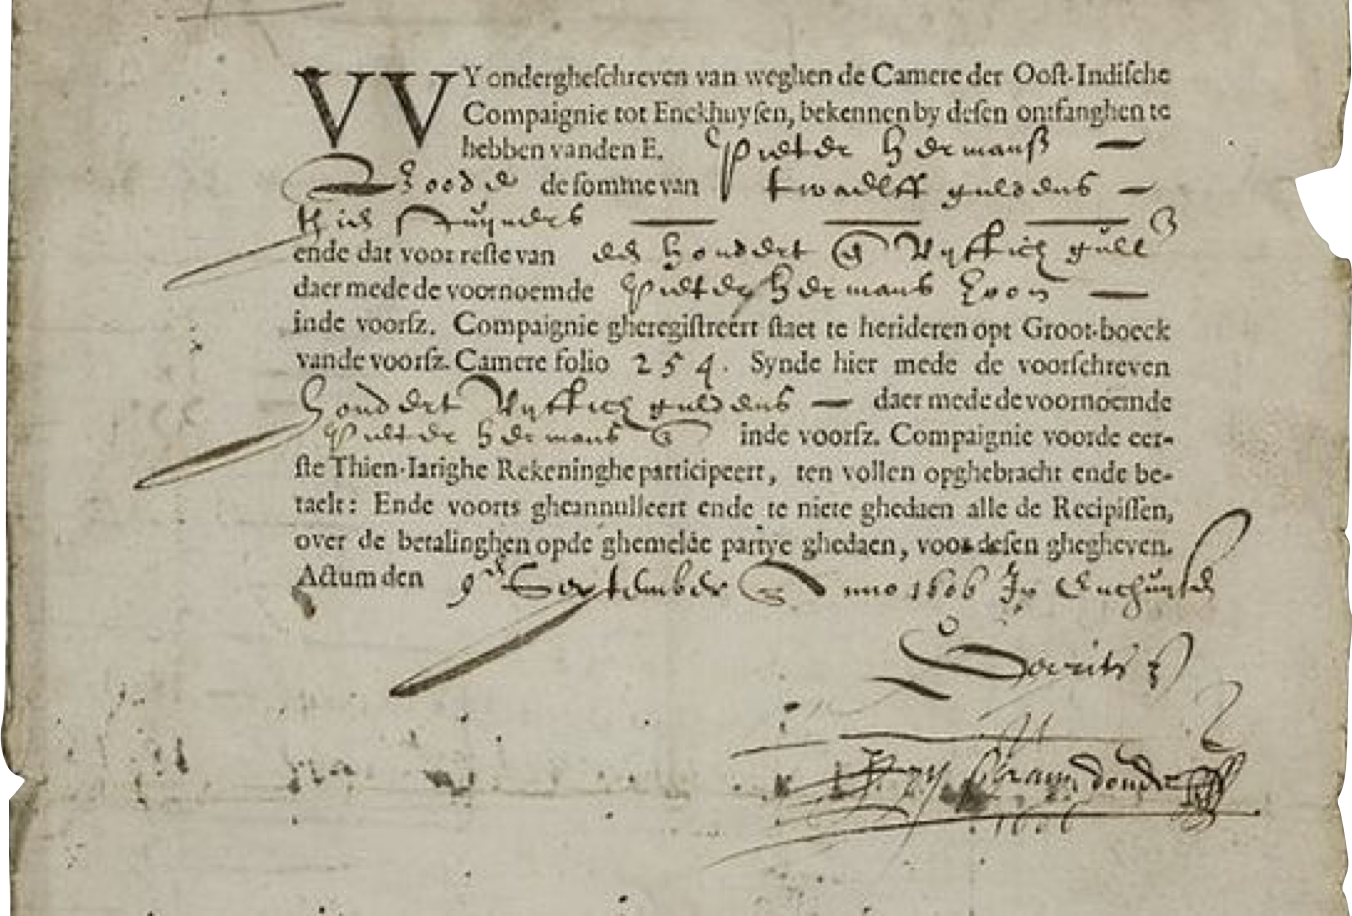 WY ondergheschreven van weghen de Camere der Oost-Indische
Compaignie tot Enckhuysen, bekennen by desen ontfanghen te
hebben vanden E. Pieter Hermansz —
Boode de somme van twaelff guldens —
ende dat voor reste van een hondert en Vyftich gull
daer mede de voornoemde Pieter Hermans Zoon —
inde voorsz. Compaignie gheregistreert staet te herideren opt Groot-boeck
vande voorsz. Camere folio 254. Synde hier mede de voorschreven
hondert Vyftich guldens — daer mede de voornoemde
Pieter Hermans inde voorsz. Compaignie voorde eer-
ste Thien-Iarighe Rekeninghe participeert, ten vollen opghebracht ende be-
taelt: Ende voorts gheannulleert ende te niete ghedaen alle de Recipissen,
over de betalinghen opde ghemelde partye ghedaen, voor desen ghegheven.
Actum den 9en September Anno 1606 In Enchuysen